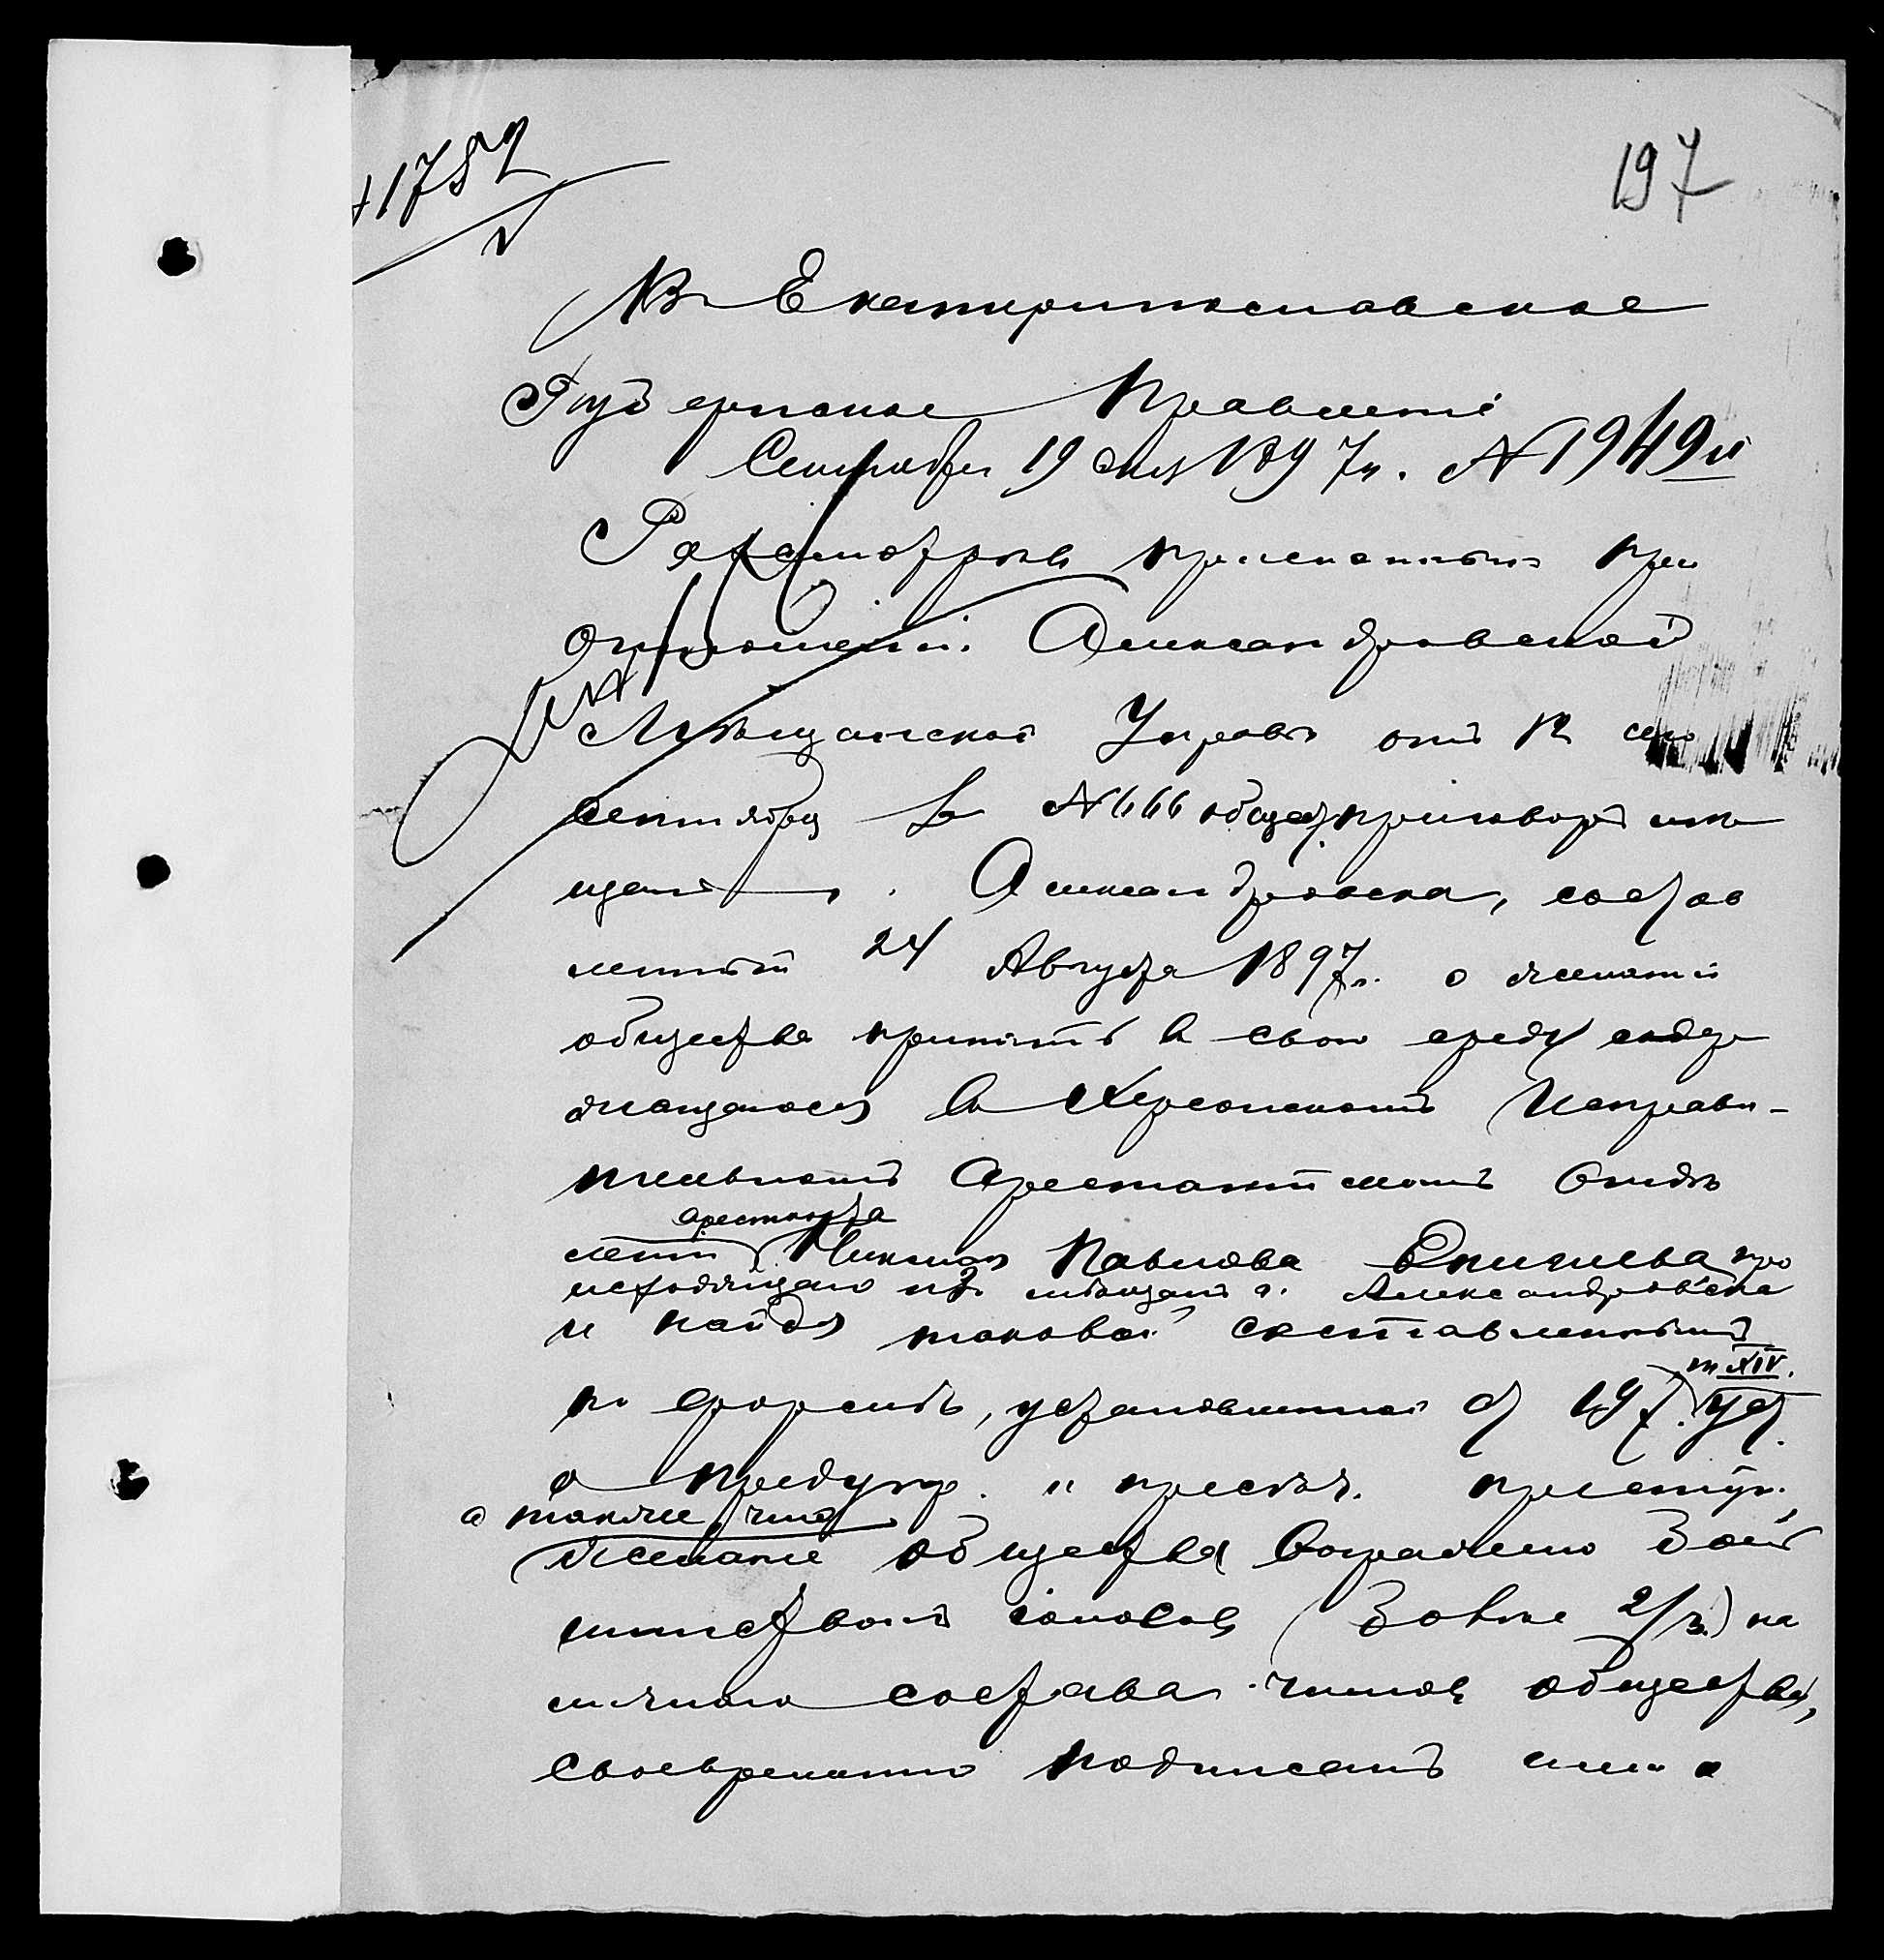 1782
197
Въ Екатеринославское
Губернское Правленіе
Сентября 19 дня 1897 г. № 1949
Разсмотрѣвъ присланный при
отношеніи Александровской
Мѣщанской Управы отъ 12 сего
сентября за № 666 общест. приговоръ мѣ
щанъ г. Александровска, состав
ленный 24 Августа 1897 г. о желаніи
общества принять въ свою среду содер
жащагося въ Херсонскомъ Исправи-
тельномъ Арестантскомъ Отдѣ
арестанта
леніи Павлова про
исходящаго изъ мѣщанъ г. Александровска
и найдя таковой составленнымъ
т XIV.
по формѣ, установленной ст 197. Уст.
о предупр. и пресѣч. преступ.
а также, что
желаніе общества выражено боль
шинствомъ голосовъ (болѣе 2/3) на
личнаго состава членовъ общества,
своевременно подписанъ ими и